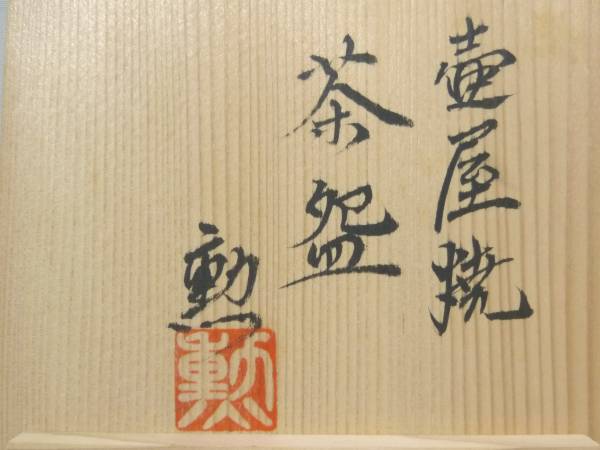 壷屋焼
茶盌
勲
勲